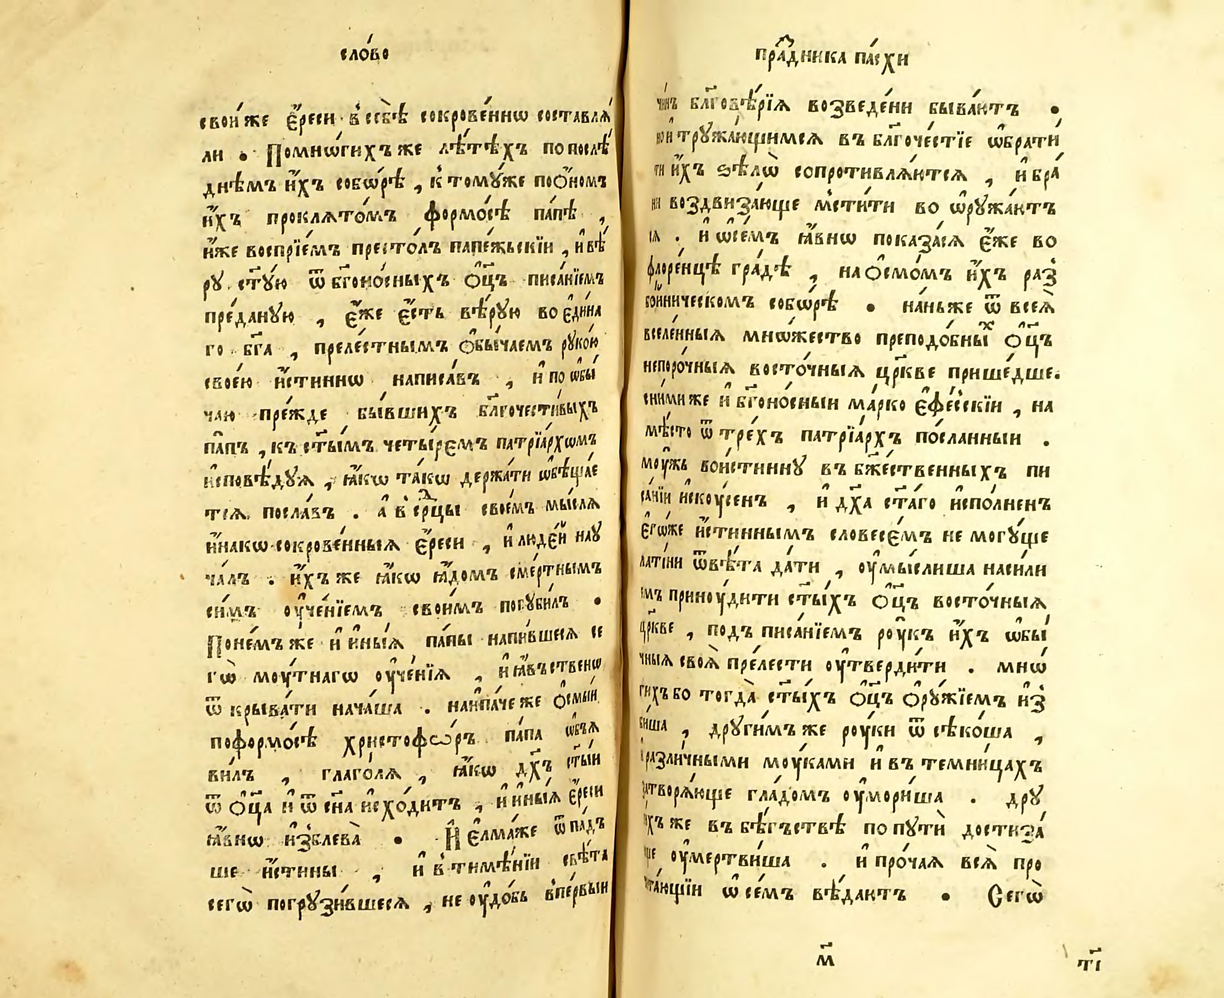 сло́во
свои́ же є҆́реси в̾ себѣ̀ сокрове́нно составлѧ́
ли . По мно́гихъ же лѣ́тѣхъ по послѣ́
днѣмъ и҆́хъ собо́рѣ , к̾ тому́же по ѻ҆́номъ
и҆́хъ проклято́мъ формо́сѣ па́пѣ ,
и҆́же воспрїе́мъ престо́лъ папе́жьскїи , и҆ вѣ́
ру ст҃ую ѿ бг҃оно́сныхъ ѻ҆ц҃ъ писа́нїемъ
пре́даную , є҆́же є҆́сть вѣ́рую во є҆ди́на
го бг҃а , преле́стнымъ ѻ҆бы́чаемъ руко́ю
свое́ю и҆́стинно написа́въ , и҆ по ѡ҆бы́
чаю пре́жде бы́вшихъ бл҃гочести́выхъ
па́пъ , къ ст҃ы́мъ четы́ремъ патрїа́рхѡмъ
и҆сповѣ́дуѧ , ꙗ҆́кѡ та́кѡ держа́ти ѡ҆бѣща́е
тсѧ посла́въ . а҆ в̾ ср҃дцы свое́мъ мы́слѧ
и҆на́кѡ сокрове́нныѧ є҆́реси , и҆ люде́й нау
ча́лъ . и҆́хъ же ꙗ҆́кѡ ꙗ҆́домъ сме́ртнымъ
си́мъ ѹ҆че́нїемъ свои́мъ погуби́лъ .
По не́мъ же и҆ и҆ны́ѧ па́пы напи́вшесѧ се
гѡ̀ мѹ́тнагѡ ѹ҆че́нїѧ , и҆ ꙗ҆́вьственѡ
ѿкрыва́ти нача́ша . наипа́че же ѻ҆смы́и
по формо́сѣ христофѡ́ръ па́па ѡ҆бъѧ
ви́лъ , глаго́лѧ , ꙗ҆́кѡ дх҃ъ ст҃ы́и
ѿ ѻ҆ц҃а и҆ ѿ сн҃а и҆схо́дитъ , и҆ и҆ны́ѧ є҆́реси
ꙗ҆́внѡ и҆зблева̀ . И҆ є҆лма́же ѿпа́дъ
ше и҆́стины , и҆ в̾ тимѣ́нїи свѣ́та
сегѡ̀ погрузи́вшесѧ , не ѹ҆до́бь в̾ пе́рвыи
пра́здника па́схи
чи́нъ бл҃говѣ́рїѧ возведе́ни быва́ютъ .
но и҆ тружа́ющимсѧ въ бл҃гоче́стїе ѡ҆брати́
ти и҆́хъ ѕѣлѡ̀ сопротивлѧ́ютсѧ , и҆ бра́
ни воздвиза́юще м̾сти́ти во ѡ҆ружа́ютъ
сѧ . и҆ ѡ҆ се́мъ ꙗ҆́внѡ показа́сѧ є҆́же во
флоре́нцѣ гра́дѣ , на ѻ҆смо́мъ и҆́хъ раз̾
бои́ническомъ собо́рѣ . на́ньже ѿ всеѧ̀
вселе́нныѧ мно́жество преподо́бныхъ ѻ҆ц҃ъ
непоро́чныѧ восто́чныѧ цр҃кве прише́дше.
с ни́ми же и҆ бг҃оно́сныи ма́рко є҆фе́сскїи , на
мѣ́сто ѿ тре́хъ патрїа́рхъ по́сланныи .
мѹ́жь вои́стинну въ бж҃е́ственныхъ пи
са́нїи и҆скѹ́сенъ , и҆ дх҃а ст҃а́го и҆спо́лненъ
є҆го́же и҆́стиннымъ словесе́мъ не могу́ще
лати́ни ѿвѣ́та да́ти , ѹ҆мы́слиша наси́ли
емъ принѹ́дити ст҃ы́хъ ѻ҆ц҃ъ восто́чныѧ
цр҃кве , подъ писа́нїемъ рѹ́къ и҆́хъ ѡ҆бы́
чныѧ своѧ̀ пре́лести ѹ҆тверди́ти . мнѡ́
гихъ бо тогда̀ ст҃ы́хъ ѻ҆ц҃ъ ѻ҆ру́жїемъ и҆з̾
би́ша , други́мъ же рѹ́ки ѿсѣко́ша ,
и҆ разли́чными мѹ́ками и҆ въ темни́цахъ
затворѧ́юще гла́домъ ѹ҆мори́ша . дру
ги́хъ же въ бѣ́гъствѣ по путѝ достиза́
ще ѹ҆мертви́ша . и҆ про́чаѧ всѧ̀ про
чита́ющїи ѡ҆ се́мъ вѣ́даютъ . Сегѡ̀
м҃
т҃і